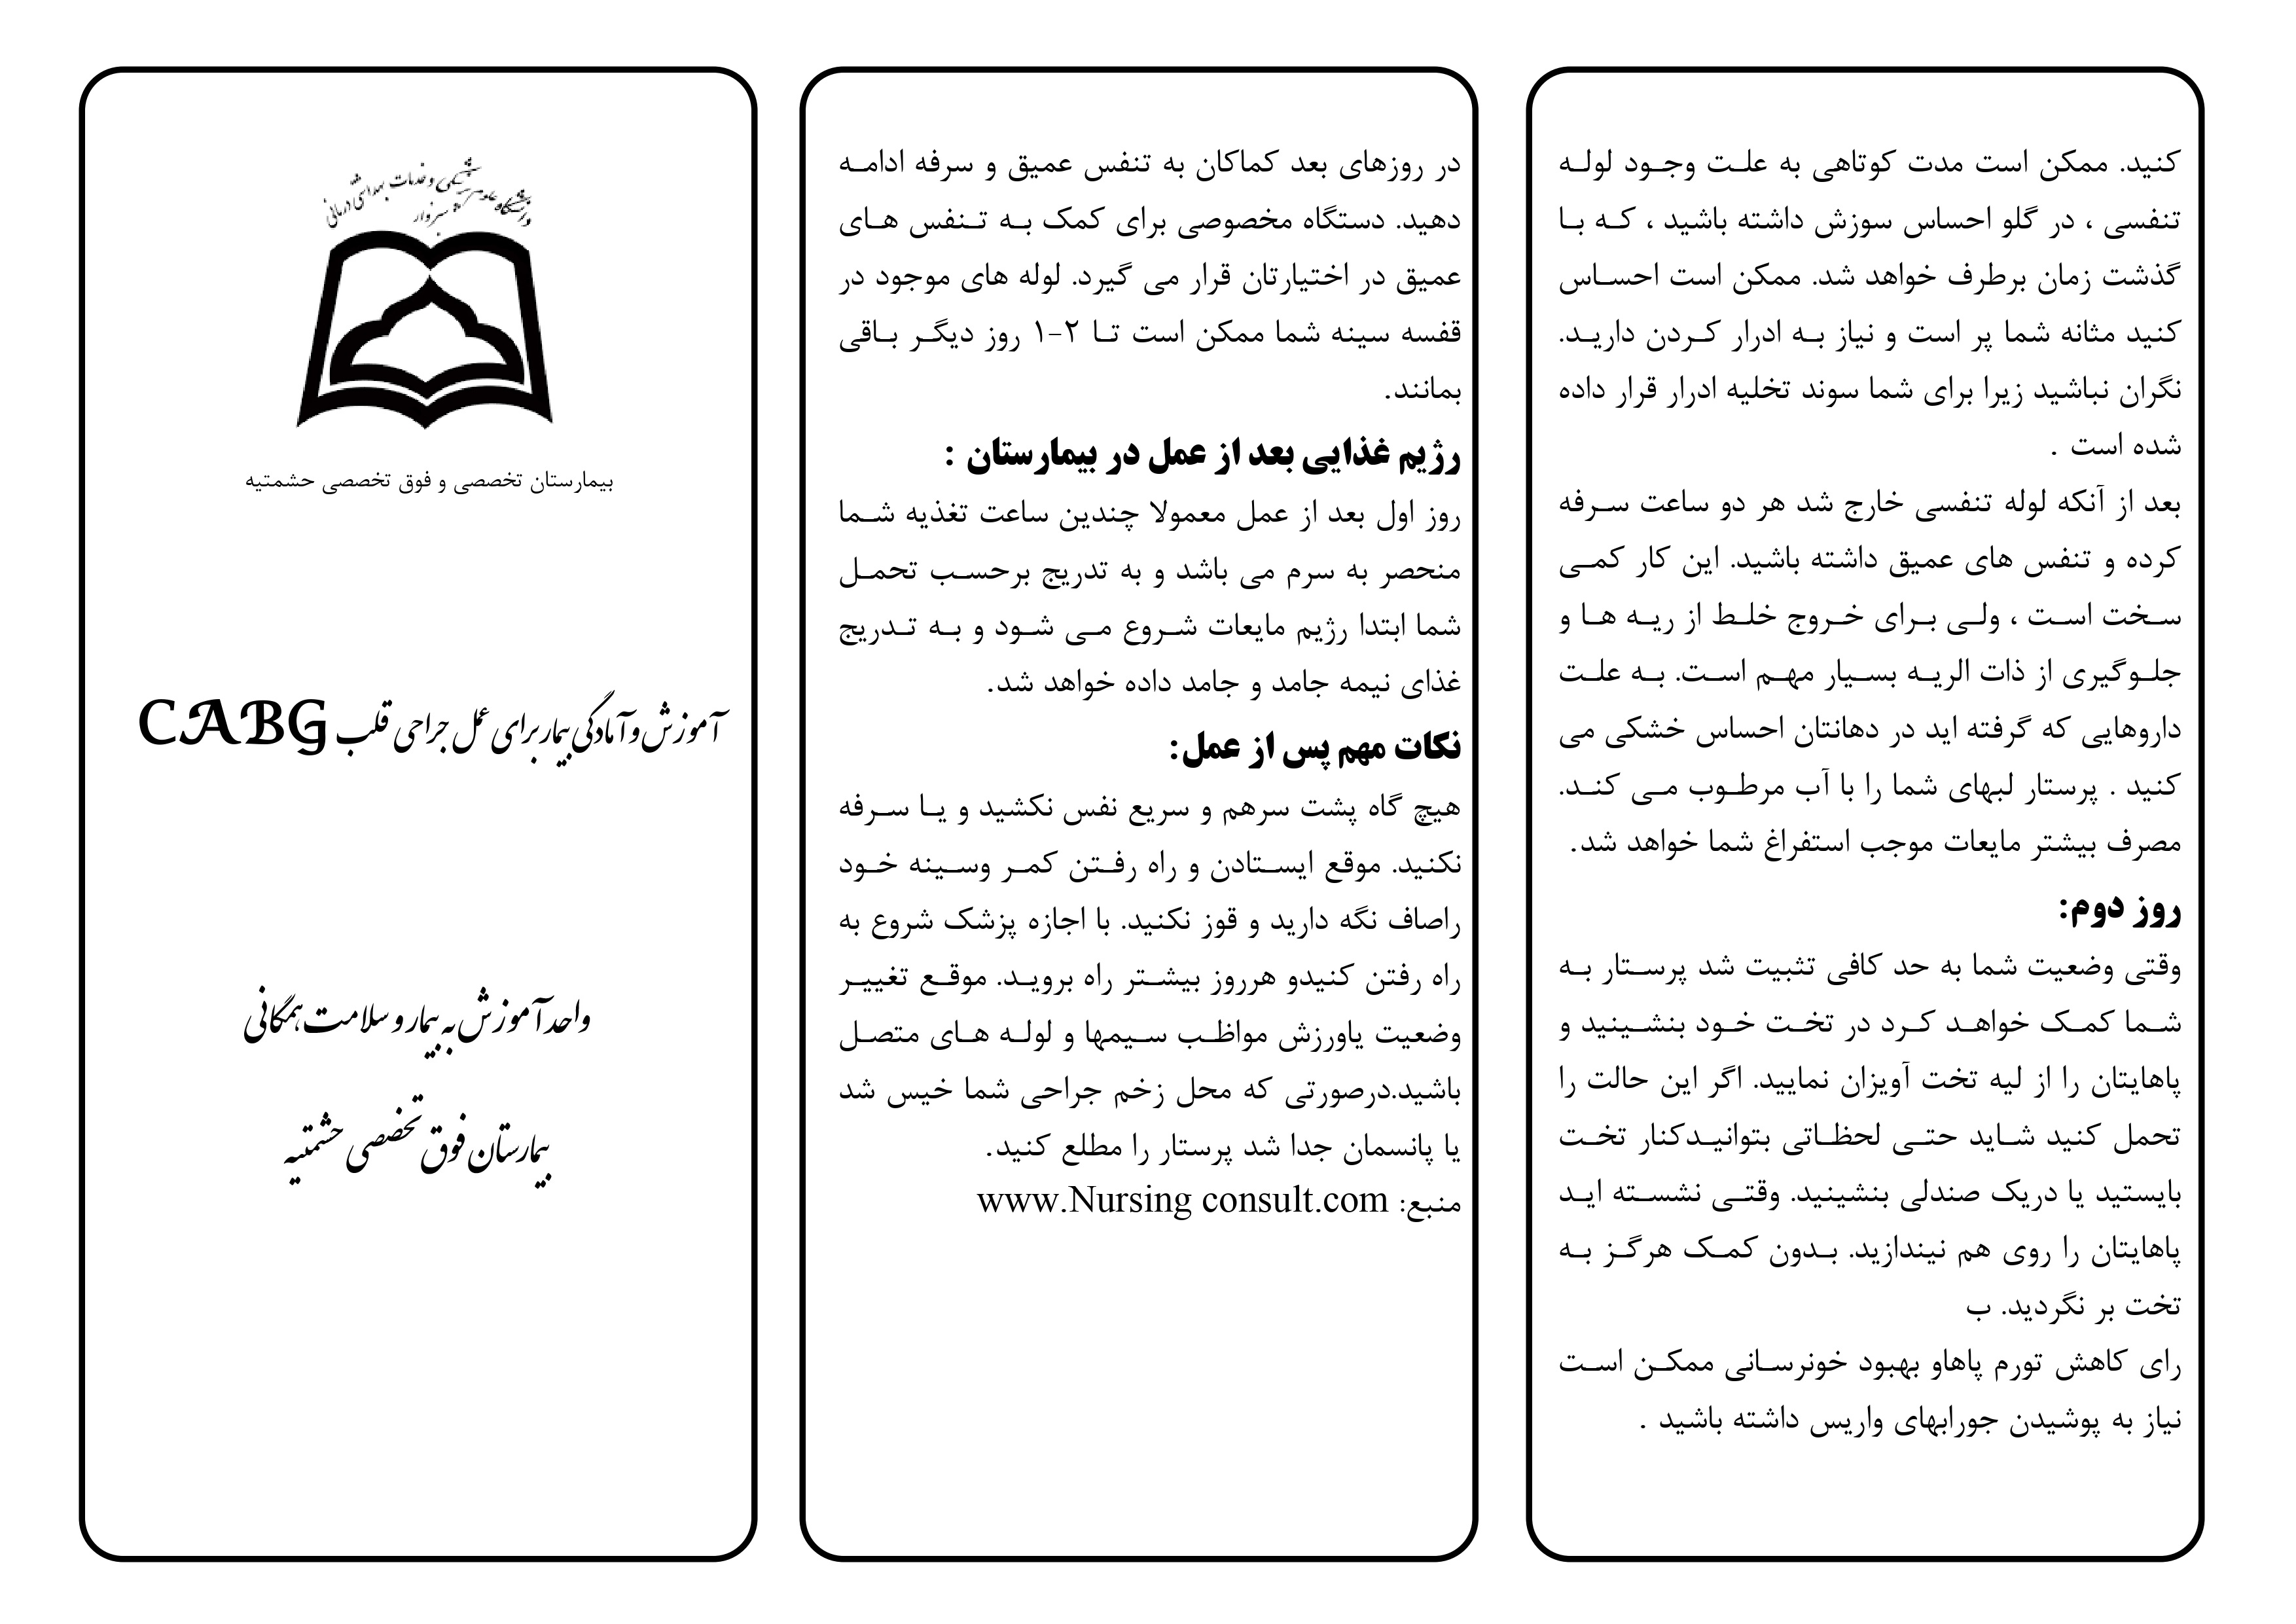 کنید. ممکن است مدت کوتاهی به علت وجود لوله
تنفسی ، در گلو احساس سوزش داشته باشید ، که با
گذشت زمان برطرف خواهد شد. ممکن است احساس
کنید مثانه شما پر است و نیاز به ادرار کردن دارید.
نگران نباشید زیرا برای شما سوند تخلیه ادرار قرار داده
شده است .
بعد از آنکه لوله تنفسی خارج شد هر دو ساعت سرفه
کرده و تنفس های عمیق داشته باشید. این کار کمی
سخت است ، ولی برای خروج خلط از ریه ها و
جلوگیری از ذات الریه بسیار مهم است. به علت
داروهایی که گرفته اید در دهانتان احساس خشکی می
کنید . پرستار لبهای شما را با آب مرطوب می کند.
مصرف بیشتر مایعات موجب استفراغ شما خواهد شد.
روز دوم:
وقتی وضعیت شما به حد کافی تثبیت شد پرستار به
شما کمک خواهد کرد در تخت خود بنشینید و
پاهایتان را از لیه تخت آویزان نمایید. اگر این حالت را
تحمل کنید شاید حتی لحظاتی بتوانیدکنار تخت
بایستید یا دریک صندلی بنشینید. وقتی نشسته اید
پاهایتان را روی هم نیندازید. بدون کمک هرگز به
تخت بر نگردید. ب
رای کاهش تورم پاهاو بهبود خونرسانی ممکن است
نیاز به پوشیدن جورابهای واریس داشته باشید .
در روزهای بعد کماکان به تنفس عمیق و سرفه ادامه
دهید. دستگاه مخصوصی برای کمک به تنفس های
عمیق در اختیارتان قرار می گیرد. لوله های موجود در
قفسه سینه شما ممکن است تا ۲-۱ روز دیگر باقی
بمانند.
رژیم غذایی بعد از عمل در بیمارستان :
روز اول بعد از عمل معمولا چندین ساعت تغذیه شما
منحصر به سرم می باشد و به تدریج برحسب تحمل
شما ابتدا رژیم مایعات شروع می شود و به تدریج
غذای نیمه جامد و جامد داده خواهد شد.
نکات مهم پس از عمل:
هیچ گاه پشت سرهم و سریع نفس نکشید و یا سرفه
نکنید. موقع ایستادن و راه رفتن کمر وسینه خود
راصاف نگه دارید و قوز نکنید. با اجازه پزشک شروع به
راه رفتن کنیدو هرروز بیشتر راه بروید. موقع تغییر
وضعیت یاورزش مواظب سیمها و لوله های متصل
باشید.درصورتی که محل زخم جراحی شما خیس شد
یا پانسمان جدا شد پرستار را مطلع کنید.
منبع: www.Nursing consult.com
دانشگاه علوم پزشکی و خدمات بهداشتی درمانی
سبزوار
بیمارستان تخصصی و فوق تخصصی حشمتیه
آموزش و آمادگی بیمار برای عمل جراحی قلب CABG
واحد آموزش به بیمار و سلامت همگانی
بیمارستان فوق تخصصی حشمتیه